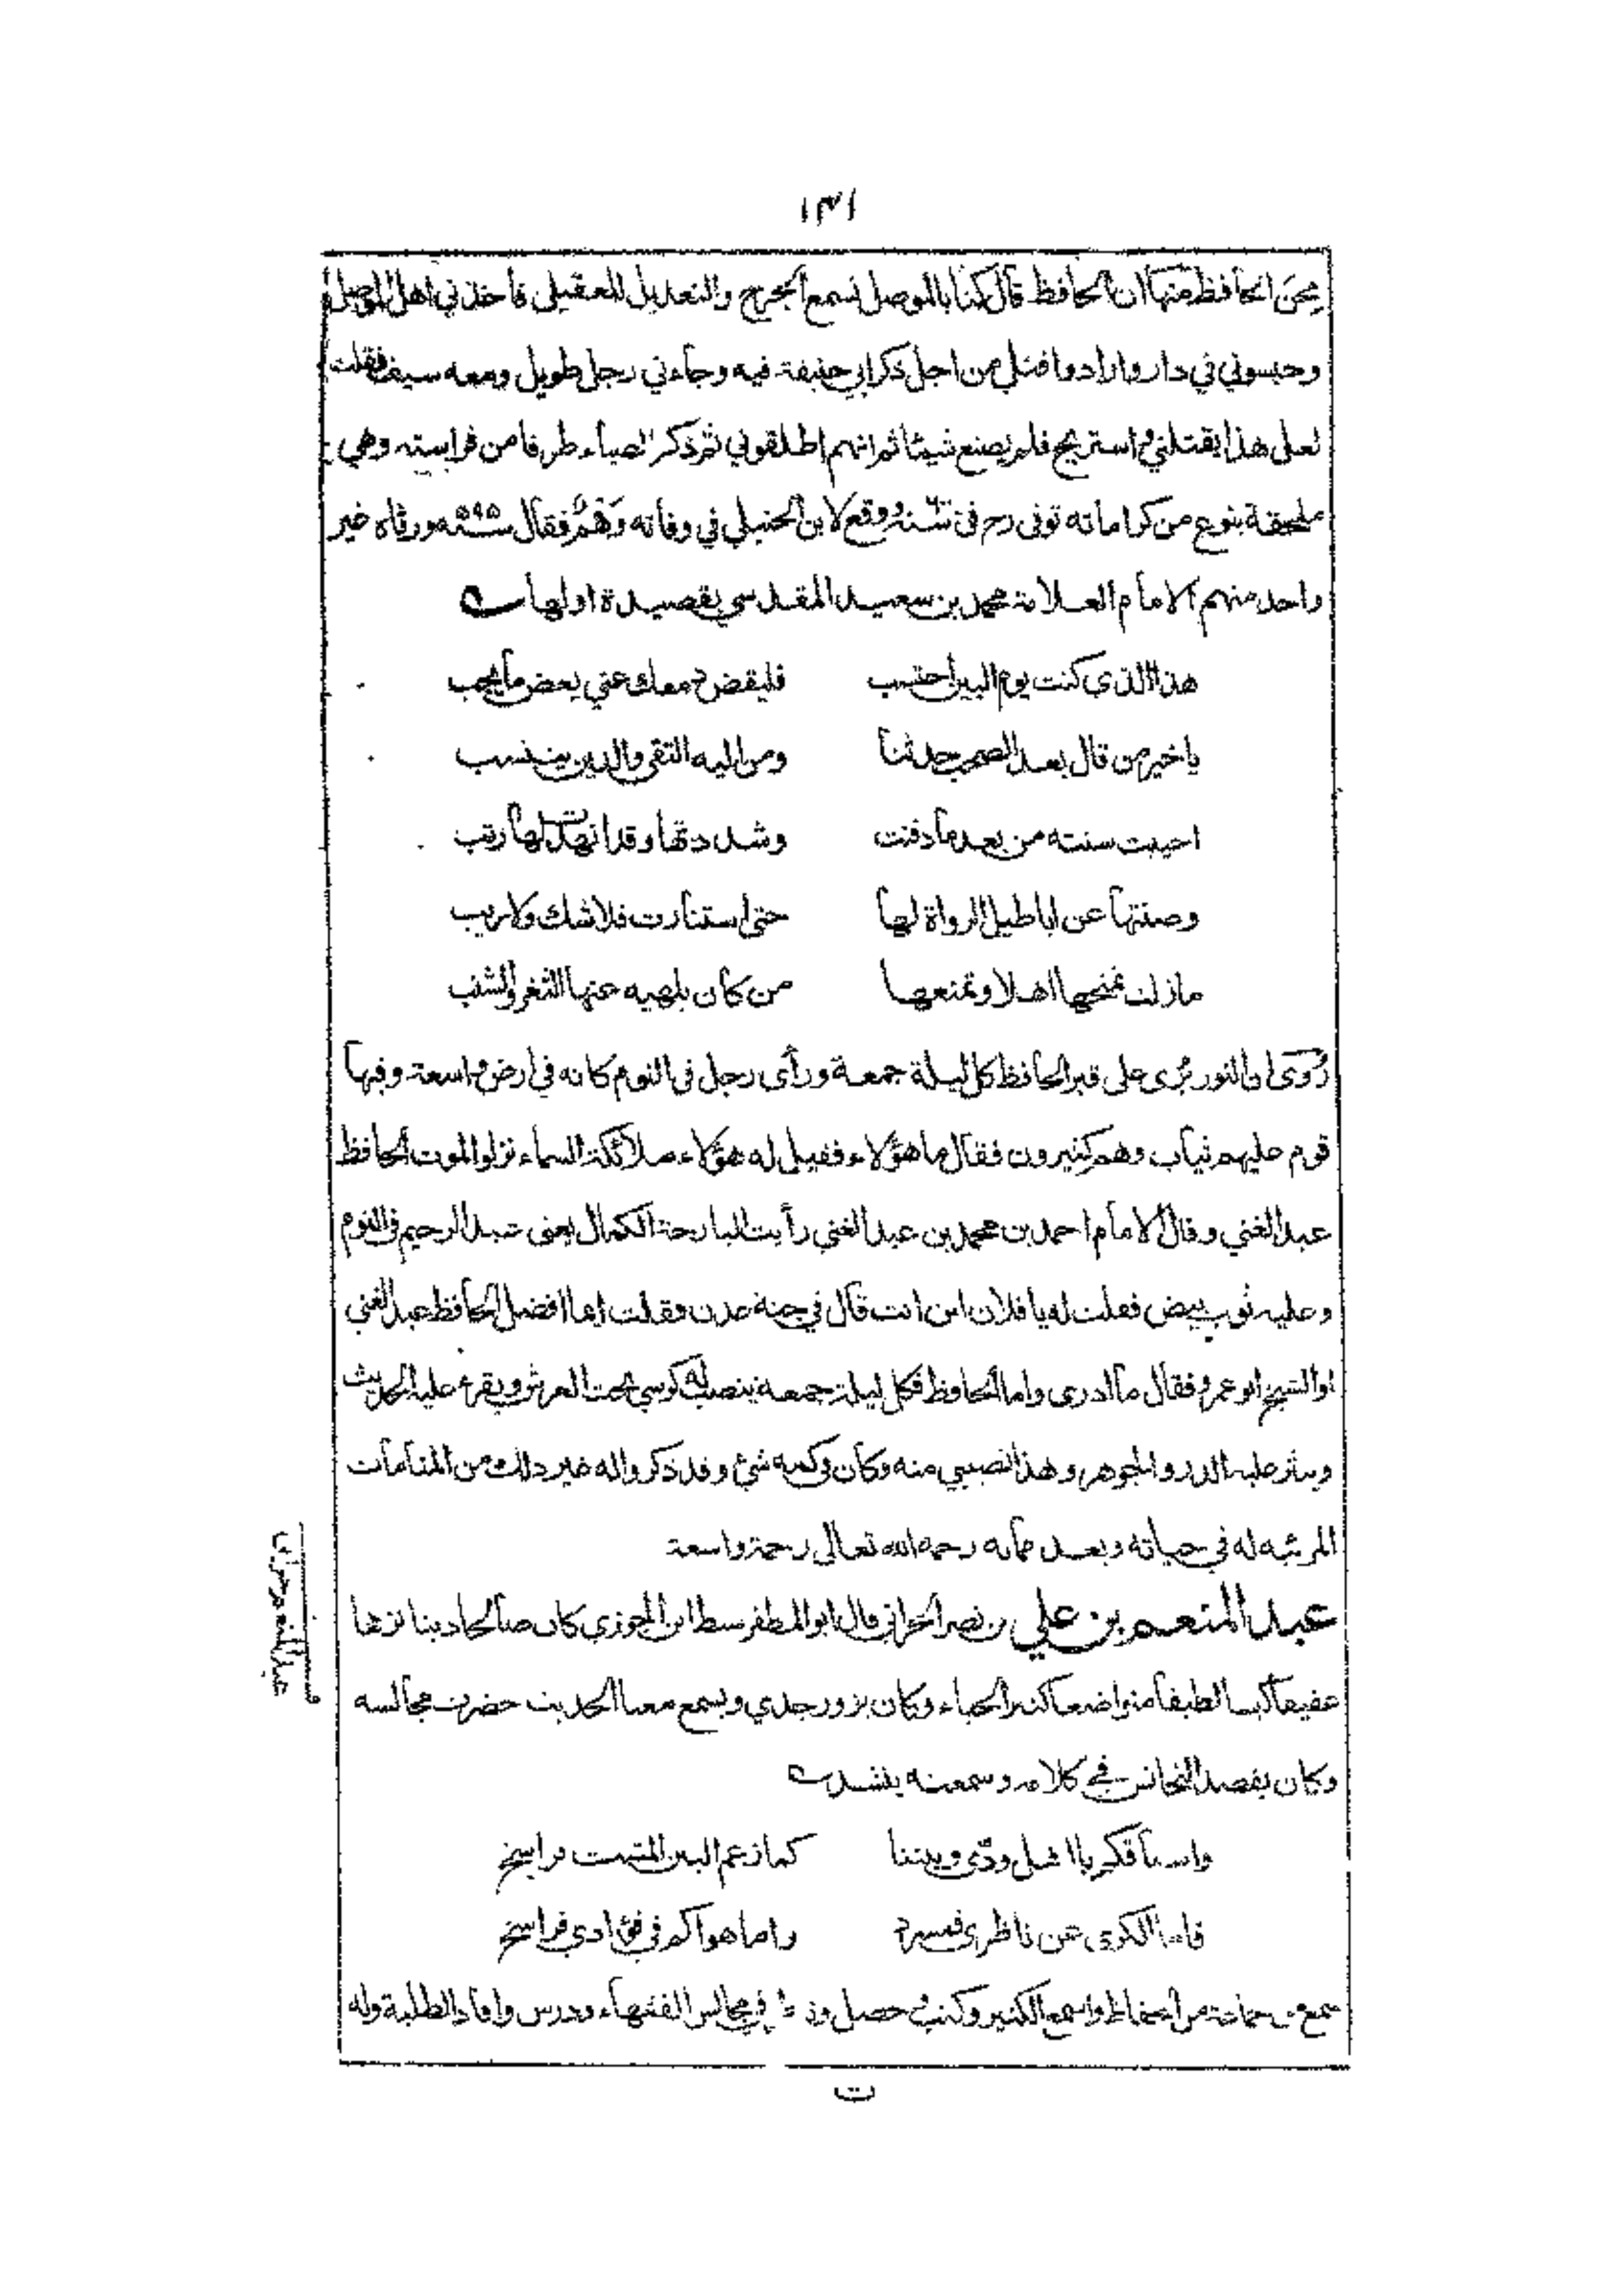 ١٣١
محن الحافظ منها ان الحافظ قال كنا بالموصل نسمع الجرح والتعديل للعقيلى فأخذني اهل الموصل
وحبسوني في دار وارادوا قتلي من اجل ذكر ابي حنيفة فيه وجاءني رجل طويل ومعه سيف فقلت
لعل هذا يقتلني واستريح فلم يصنع شيئا ثم انهم اطلقوني ثم ذكر الضياء طرفا من فراسته وهي
ملحقة بنوع من كراماته توفى رح فى سنة ووقع لابن الحنبلي في وفاته وهم فقال سنه ٥٩٥ ورثاه غير
واحد منهم الامام العلامة محمد بن سعيد المقدسي بقصيدة اولها
هذا الذي كنت يوم البين احتسب فليقض دمعك عني بعض ما يجب
يا خير من قال بعد الصحب حدثنا ومن اليه التقى والدين ينتسب
احييت سنته من بعد ما دفنت وشدتها وقد انهدت لها رتب
وصنتها عن اباطيل الرواة لها حتى استنارت فلا شك ولا ريب
مازلت تمنحها اهلا وتمنعها من كان يلهيه عنها الثغر والشنب
رُوى ان النور يُرى على قبر الحافظ كل ليلة جمعة ورأى رجل فى النوم كانه في ارض واسعة وفيها
قوم عليهم ثياب وهم كثيرون فقال ما هؤلاء فقيل له هؤلاء ملائكة السماء نزلوا لموت الحافظ
عبد الغني وقال الامام احمد بن محمد بن عبد الغني رأيت البارحة الكمال يعنى عبد الرحيم فى النوم
وعليه ثوب بيض فقلت له يا فلان اين انت قال في جنة عدن فقلت ايما افضل الحافظ عبد الغني
او الشيخ ابو عمر وفقال ما ادرى واما الحافظ فكل ليلة جمعة ينصب له كرسي تحت العرش ويقرء عليه الحديث
وينثر عليه الدر والجوهر وهذا نصيبي منه وكان في كمه شئ وقد ذكروا له غير ذلك من المنامات
المرئيه له في حياته وبعد مماته رحمه الله تعالى رحمة واسعة
عبد المنعم بن علي بن نصر الحراني قال ابو المظفر سبط ابن الجوزي كان صالحا دينا نزها
عفيفا كيسا لطيفا متواضعا كثير الحياء وكان يزور جدي ويسمع معنا الحديث حضرت مجالسه
وكان يقصد التجانس في كلامه وسمعته ينشد
عبد المنعم حراني
واحبابكم يا اهل ودي وبيننا كما زعم البين المشتت فراسخ
فاما الكرى عن ناظري فمشرد واما هواكم في فؤادي فراسخ
سمع من جماعة من الحفاظ واسمع الكثير وكتب وحصل في مجالس الفقهاء ودرس وافاد الطلبة وله
ت